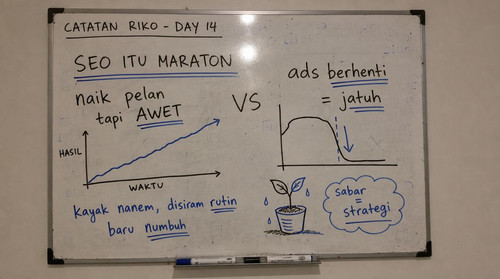 CATATAN RIKO - DAY 14
SEO ITU MARATON
naik pelan
tapi AWET
HASIL
WAKTU
VS
ads berhenti
= jatuh
kayak nanem, disiram rutin
baru numbuh
sabar
=
strategi